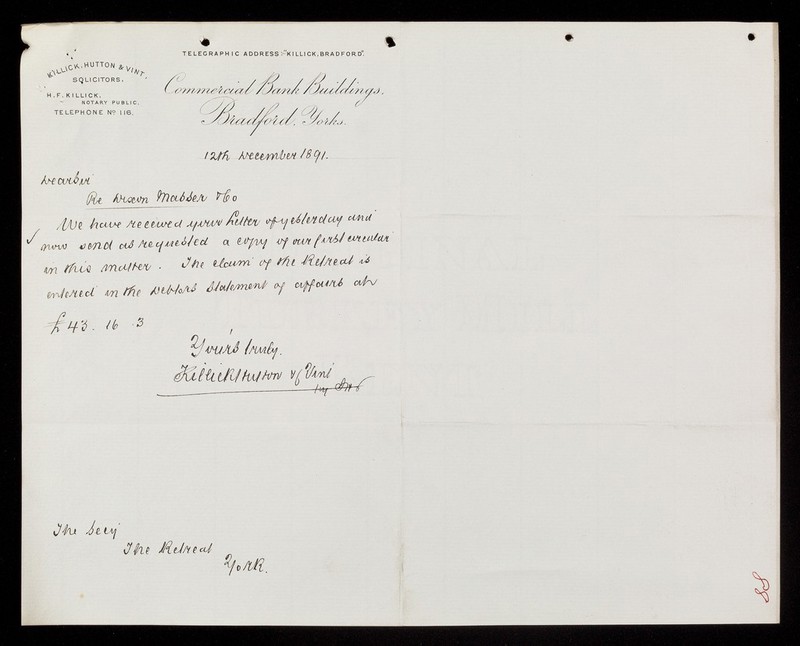 TELEGRAPHIC ADDRESS:- "KILLICK, BRADFORD".
KILLICK, HUTTON & VINT.
SOLICITORS.
H. F. KILLICK.
NOTARY PUBLIC.
TELEPHONE No 116.
Commercial Bank Buildings,
Bradford, Yorks.
12th December 1891.
Dear Sir
Re Dixon Mabber & Co
We have received your letter of yesterday and
now send as requested a copy of our first circular
in this matter. The claim of the Retreat is
entered in the Debtors Statement of affairs at
£43. 16. 3
Yours truly.
Killick Hutton & Vint
by
The Secy
The Retreat
York.
88